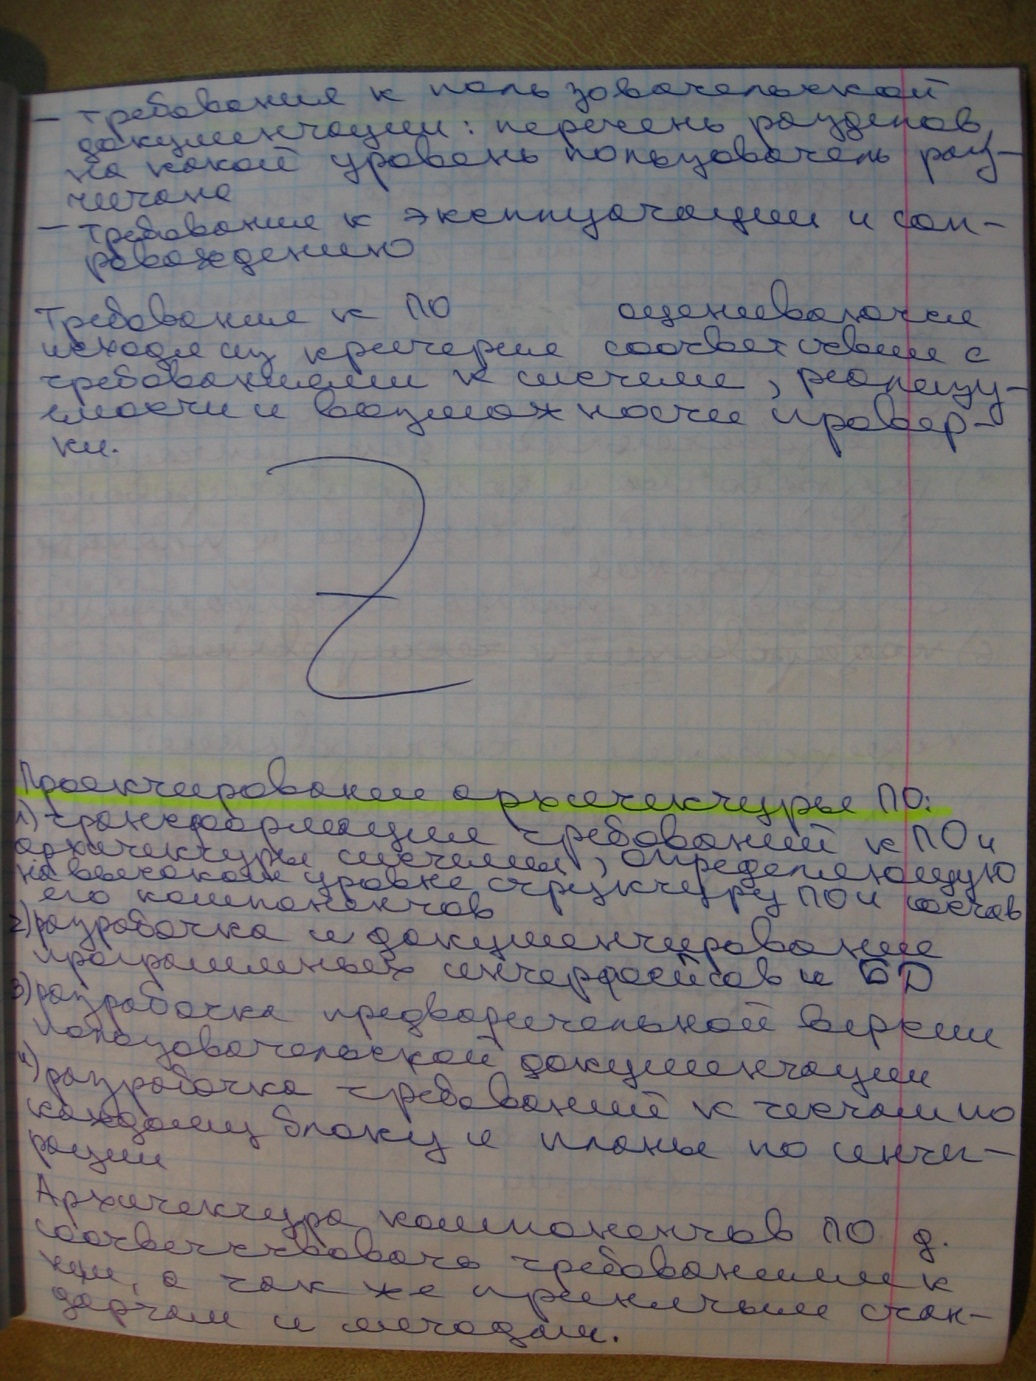 – требования к пользовательской
документации: перечень разделов,
на какой уровень пользователь рас-
читана
– требования к эксплуатации и соп-
ровождению
Требования к ПО оцениваются
исходя из критерия соответствия с
требованиями к системе, реализу-
емости и возможности провер-
ки.
Проектирование архитектуры ПО:
1) трансформация требований к ПО и
архитектуры системы, определяющую
на высоком уровне структуру ПО и состав
его компонентов
2) разработка и документирование
программных интерфейсов и БД
3) разработка предварительной версии
пользовательской документации
4) разработка требований к тестам по
каждому блоку и планы по инти-
рации
Архитектура компонентов ПО д.
соответствовать требованиям к
ним, а так же принятым стан-
дартам и методам.